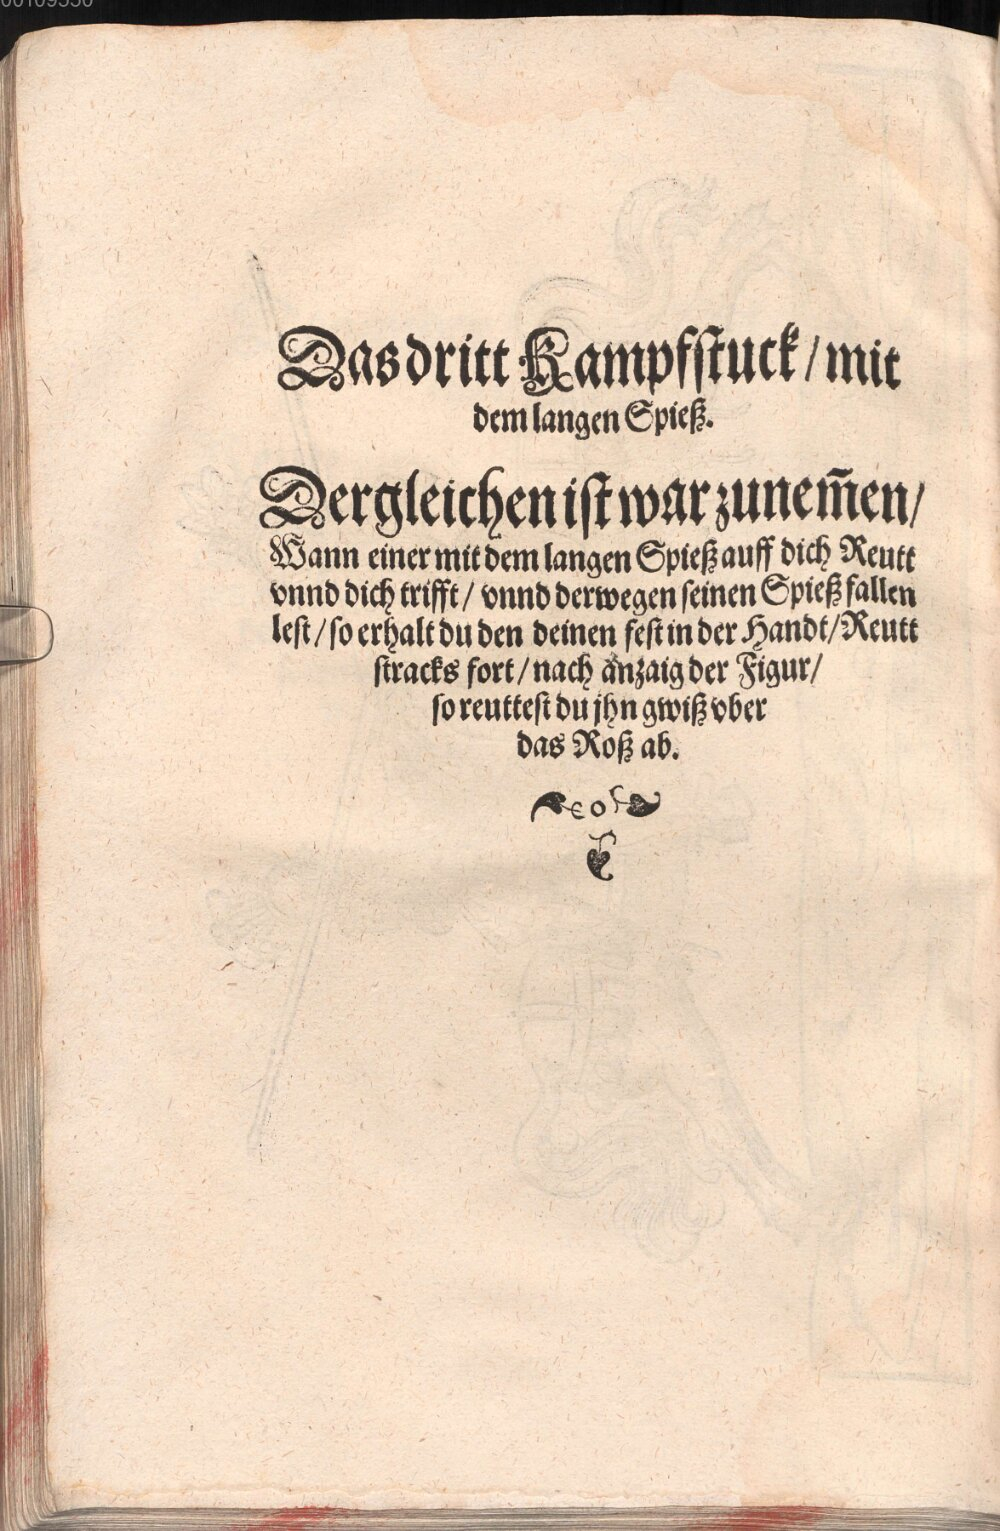 Das dritt Kampfstuck / mit
dem langen Spieß.
Dergleichen ist war zunem̄en /
Wann einer mit dem langen Spieß auff dich Reutt
vnnd dich trifft / vnnd derwegen seinen Spieß fallen
lest / so erhalt du den deinen fest in der Handt / Reutt
stracks fort / nach anzaig der Figur /
so reuttest du jhn gwiß vber
das Roß ab.